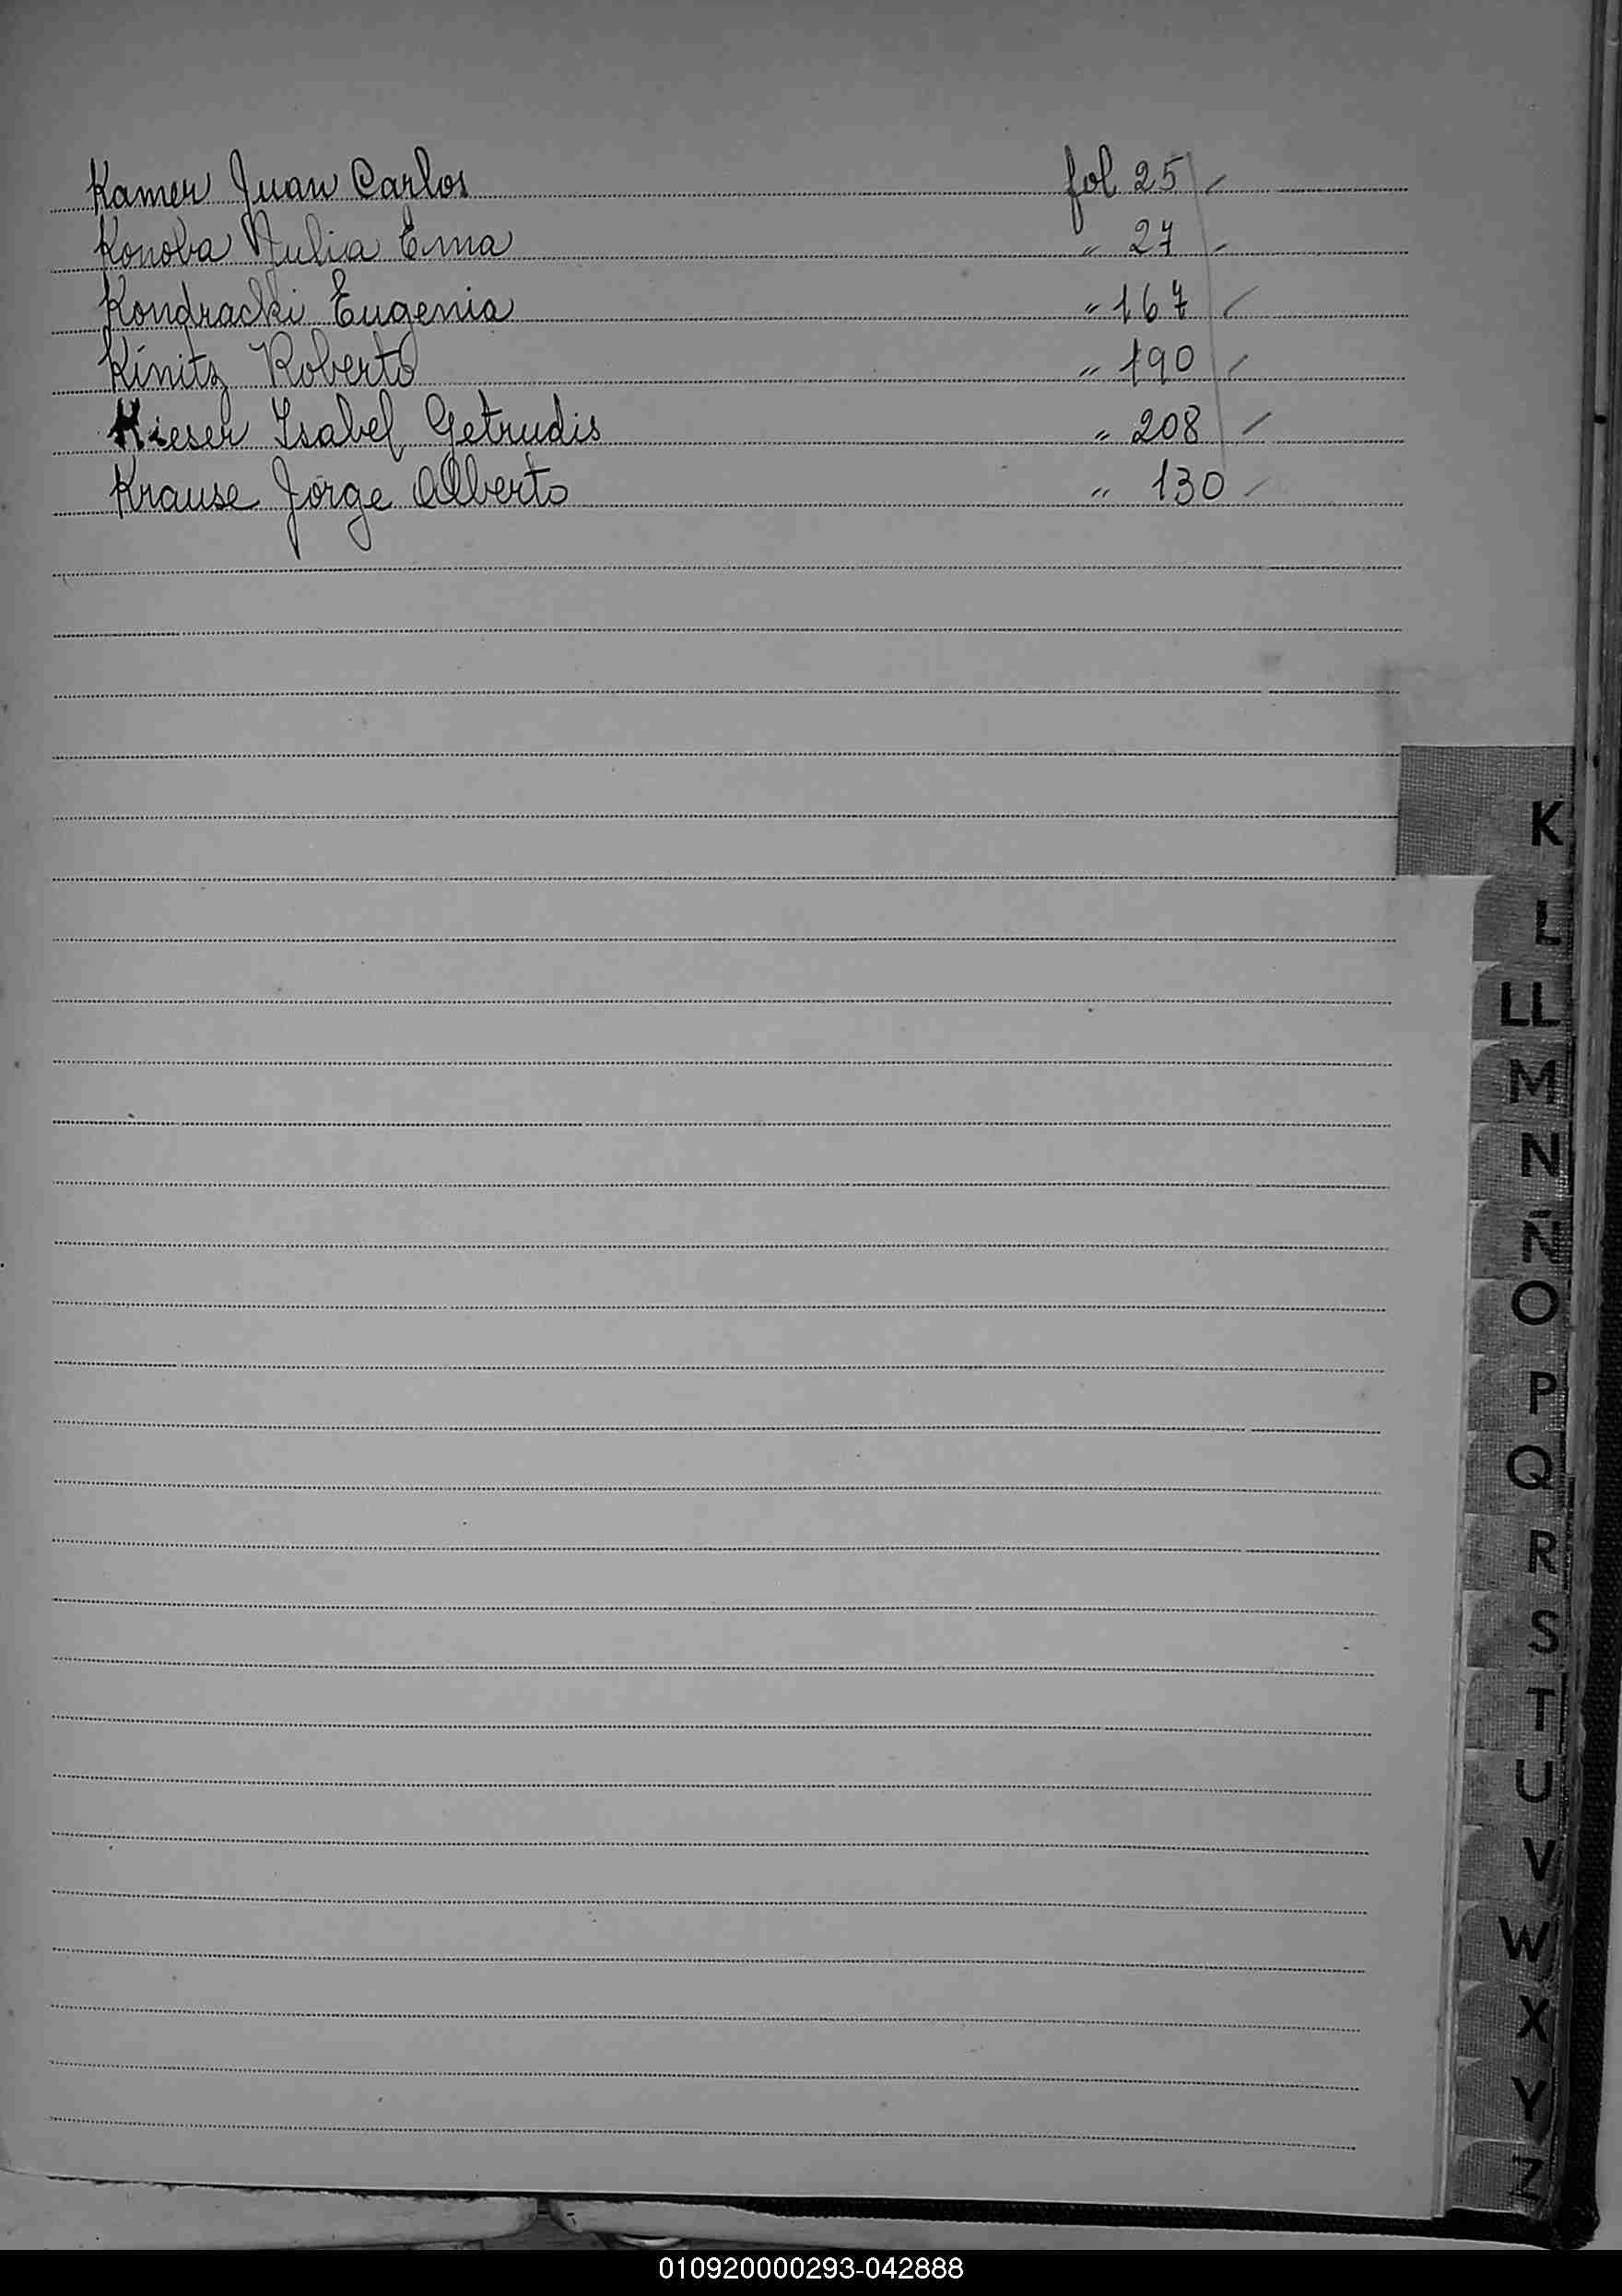 Kamer Juan Carlos fol 25
Konoba Julia Ema " 27
Kondracki Eugenia " 167
Kinitz Roberto " 190
Kieser Isabel Getrudis " 208
Krause Jorge Alberto " 130
K
L
LL
M
N
Ñ
O
P
Q
R
S
T
U
V
W
X
Y
Z
010920000293-042888